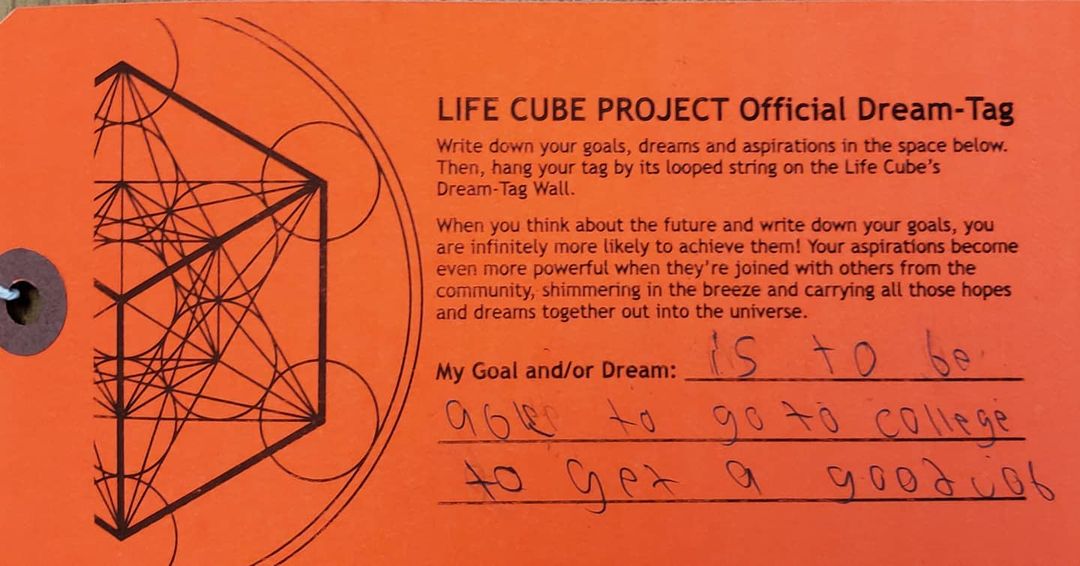 LIFE CUBE PROJECT Official Dream-Tag
Write down your goals, dreams and aspirations in the space below.
Then, hang your tag by its looped string on the Life Cube's
Dream-Tag Wall.
When you think about the future and write down your goals, you
are infinitely more likely to achieve them! Your aspirations become
even more powerful when they're joined with others from the
community, shimmering in the breeze and carrying all those hopes
and dreams together out into the universe.
My Goal and/or Dream: is to be
able to go to college
to get a good job